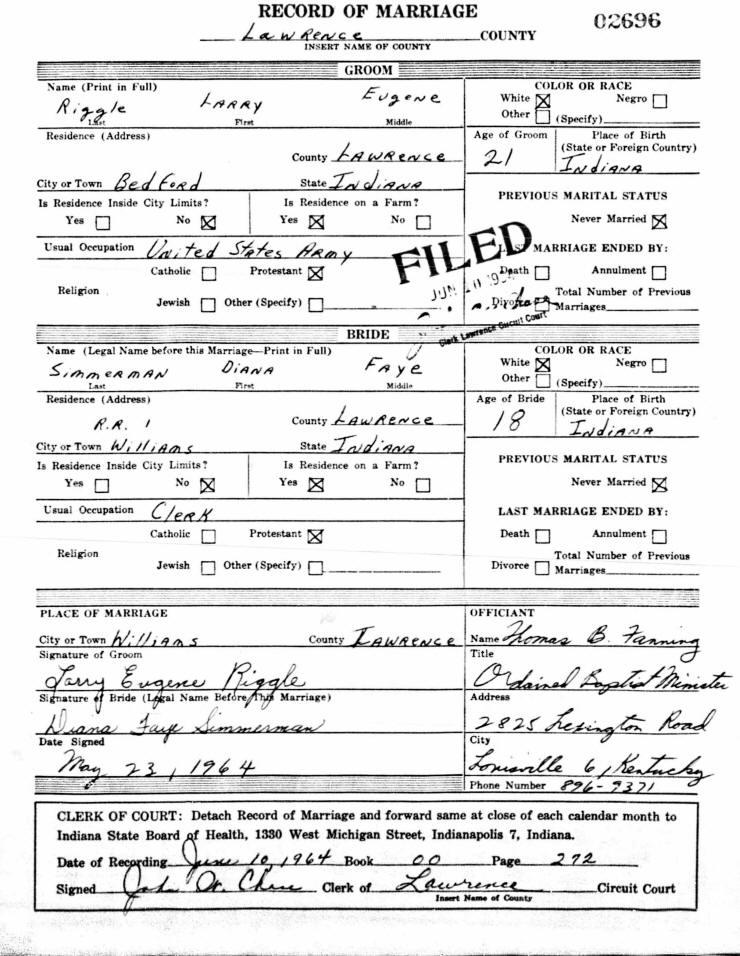 RECORD OF MARRIAGE
02696
Lawrence COUNTY
INSERT NAME OF COUNTY
GROOM
Name (Print in Full)
Riggle LARRY Eugene
Last First Middle
COLOR OR RACE
White ☒ Negro ☐
Other ☐ (Specify)
Residence (Address)
County LAWRENCE
City or Town Bedford State INDIANA
Age of Groom 21
Place of Birth
(State or Foreign Country)
INDIANA
Is Residence Inside City Limits? Is Residence on a Farm?
Yes ☐ No ☒ Yes ☒ No ☐
PREVIOUS MARITAL STATUS
Never Married ☒
Usual Occupation United States Army
Religion
Catholic ☐ Protestant ☒
Jewish ☐ Other (Specify) ☐
LAST MARRIAGE ENDED BY:
Death ☐ Annulment ☐
Divorce ☐ Total Number of Previous
Marriages
FILED
JUN 10
Clerk Lawrence Circuit Court
BRIDE
Name (Legal Name before this Marriage—Print in Full)
Simmerman Diana Faye
Last First Middle
COLOR OR RACE
White ☒ Negro ☐
Other ☐ (Specify)
Residence (Address)
R.R. 1 County LAWRENCE
City or Town Williams State Indiana
Age of Bride 18
Place of Birth
(State or Foreign Country)
INDIANA
Is Residence Inside City Limits? Is Residence on a Farm?
Yes ☐ No ☒ Yes ☒ No ☐
PREVIOUS MARITAL STATUS
Never Married ☒
Usual Occupation Clerk
Religion
Catholic ☐ Protestant ☒
Jewish ☐ Other (Specify) ☐
LAST MARRIAGE ENDED BY:
Death ☐ Annulment ☐
Divorce ☐ Total Number of Previous
Marriages
PLACE OF MARRIAGE
City or Town Williams County LAWRENCE
Signature of Groom
Larry Eugene Riggle
Signature of Bride (Legal Name Before This Marriage)
Diana Faye Simmerman
Date Signed
May 23, 1964
OFFICIANT
Name Thomas B. Fanning
Title
Ordained Baptist Minister
Address
2825 Lexington Road
City
Louisville 6, Kentucky
Phone Number 896-9371
CLERK OF COURT: Detach Record of Marriage and forward same at close of each calendar month to
Indiana State Board of Health, 1330 West Michigan Street, Indianapolis 7, Indiana.
Date of Recording June 10, 1964 Book 00 Page 272
Signed John Clerk of Lawrence Circuit Court
Insert Name of County